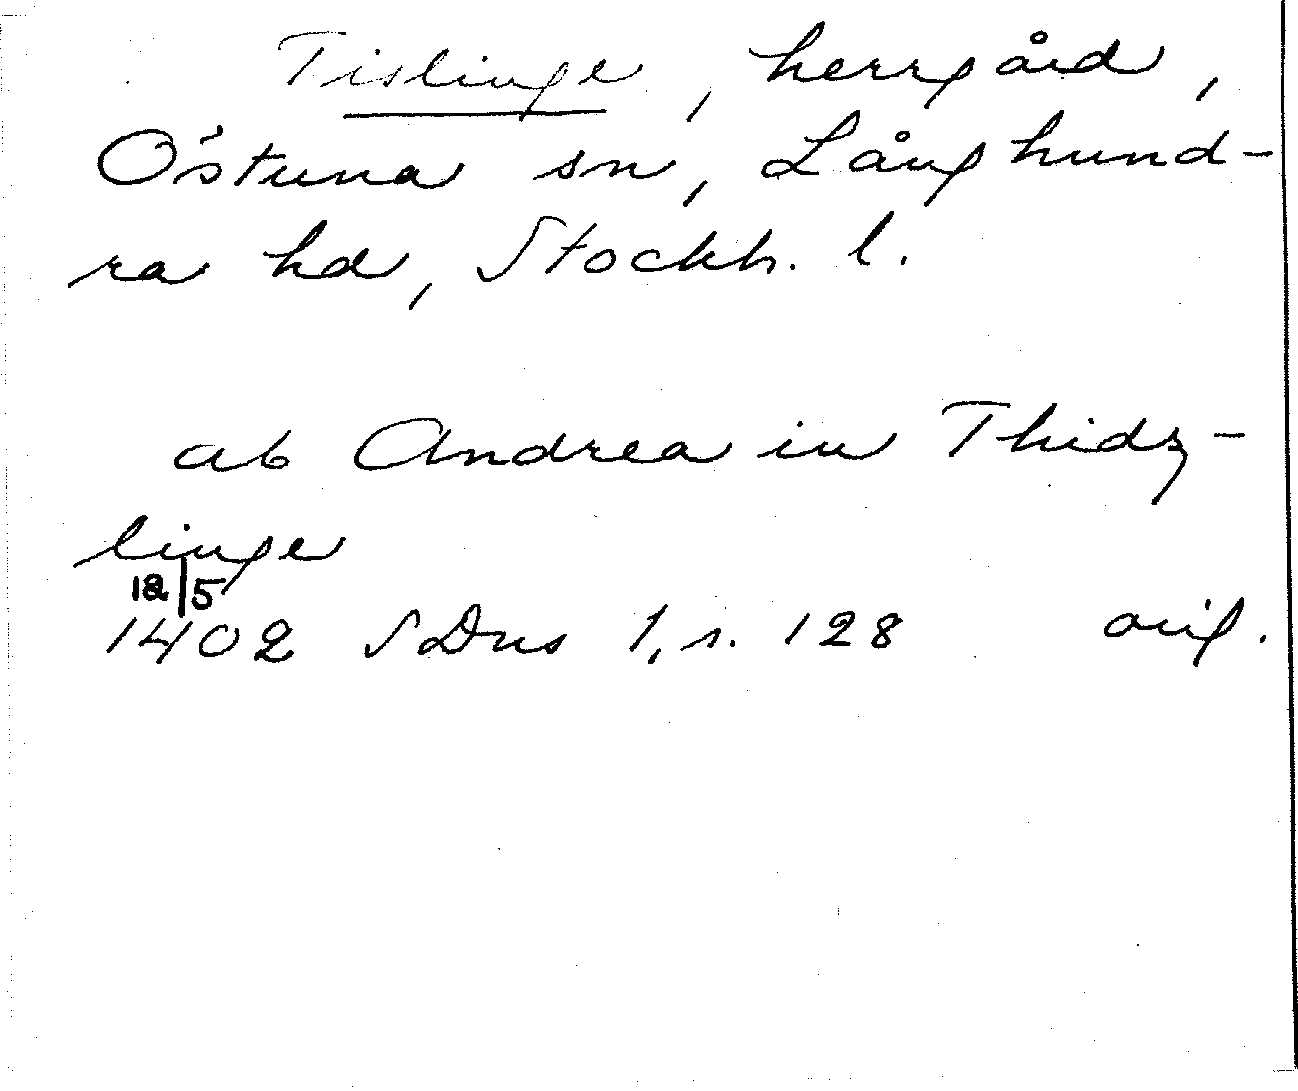 Tislinge, herrgård,
Östuna sn, Långhund-
ra hd, Stockh. l.
ab Andrea in Thidz-
linge
12/5
1402 SDns 1, s. 128 orig.